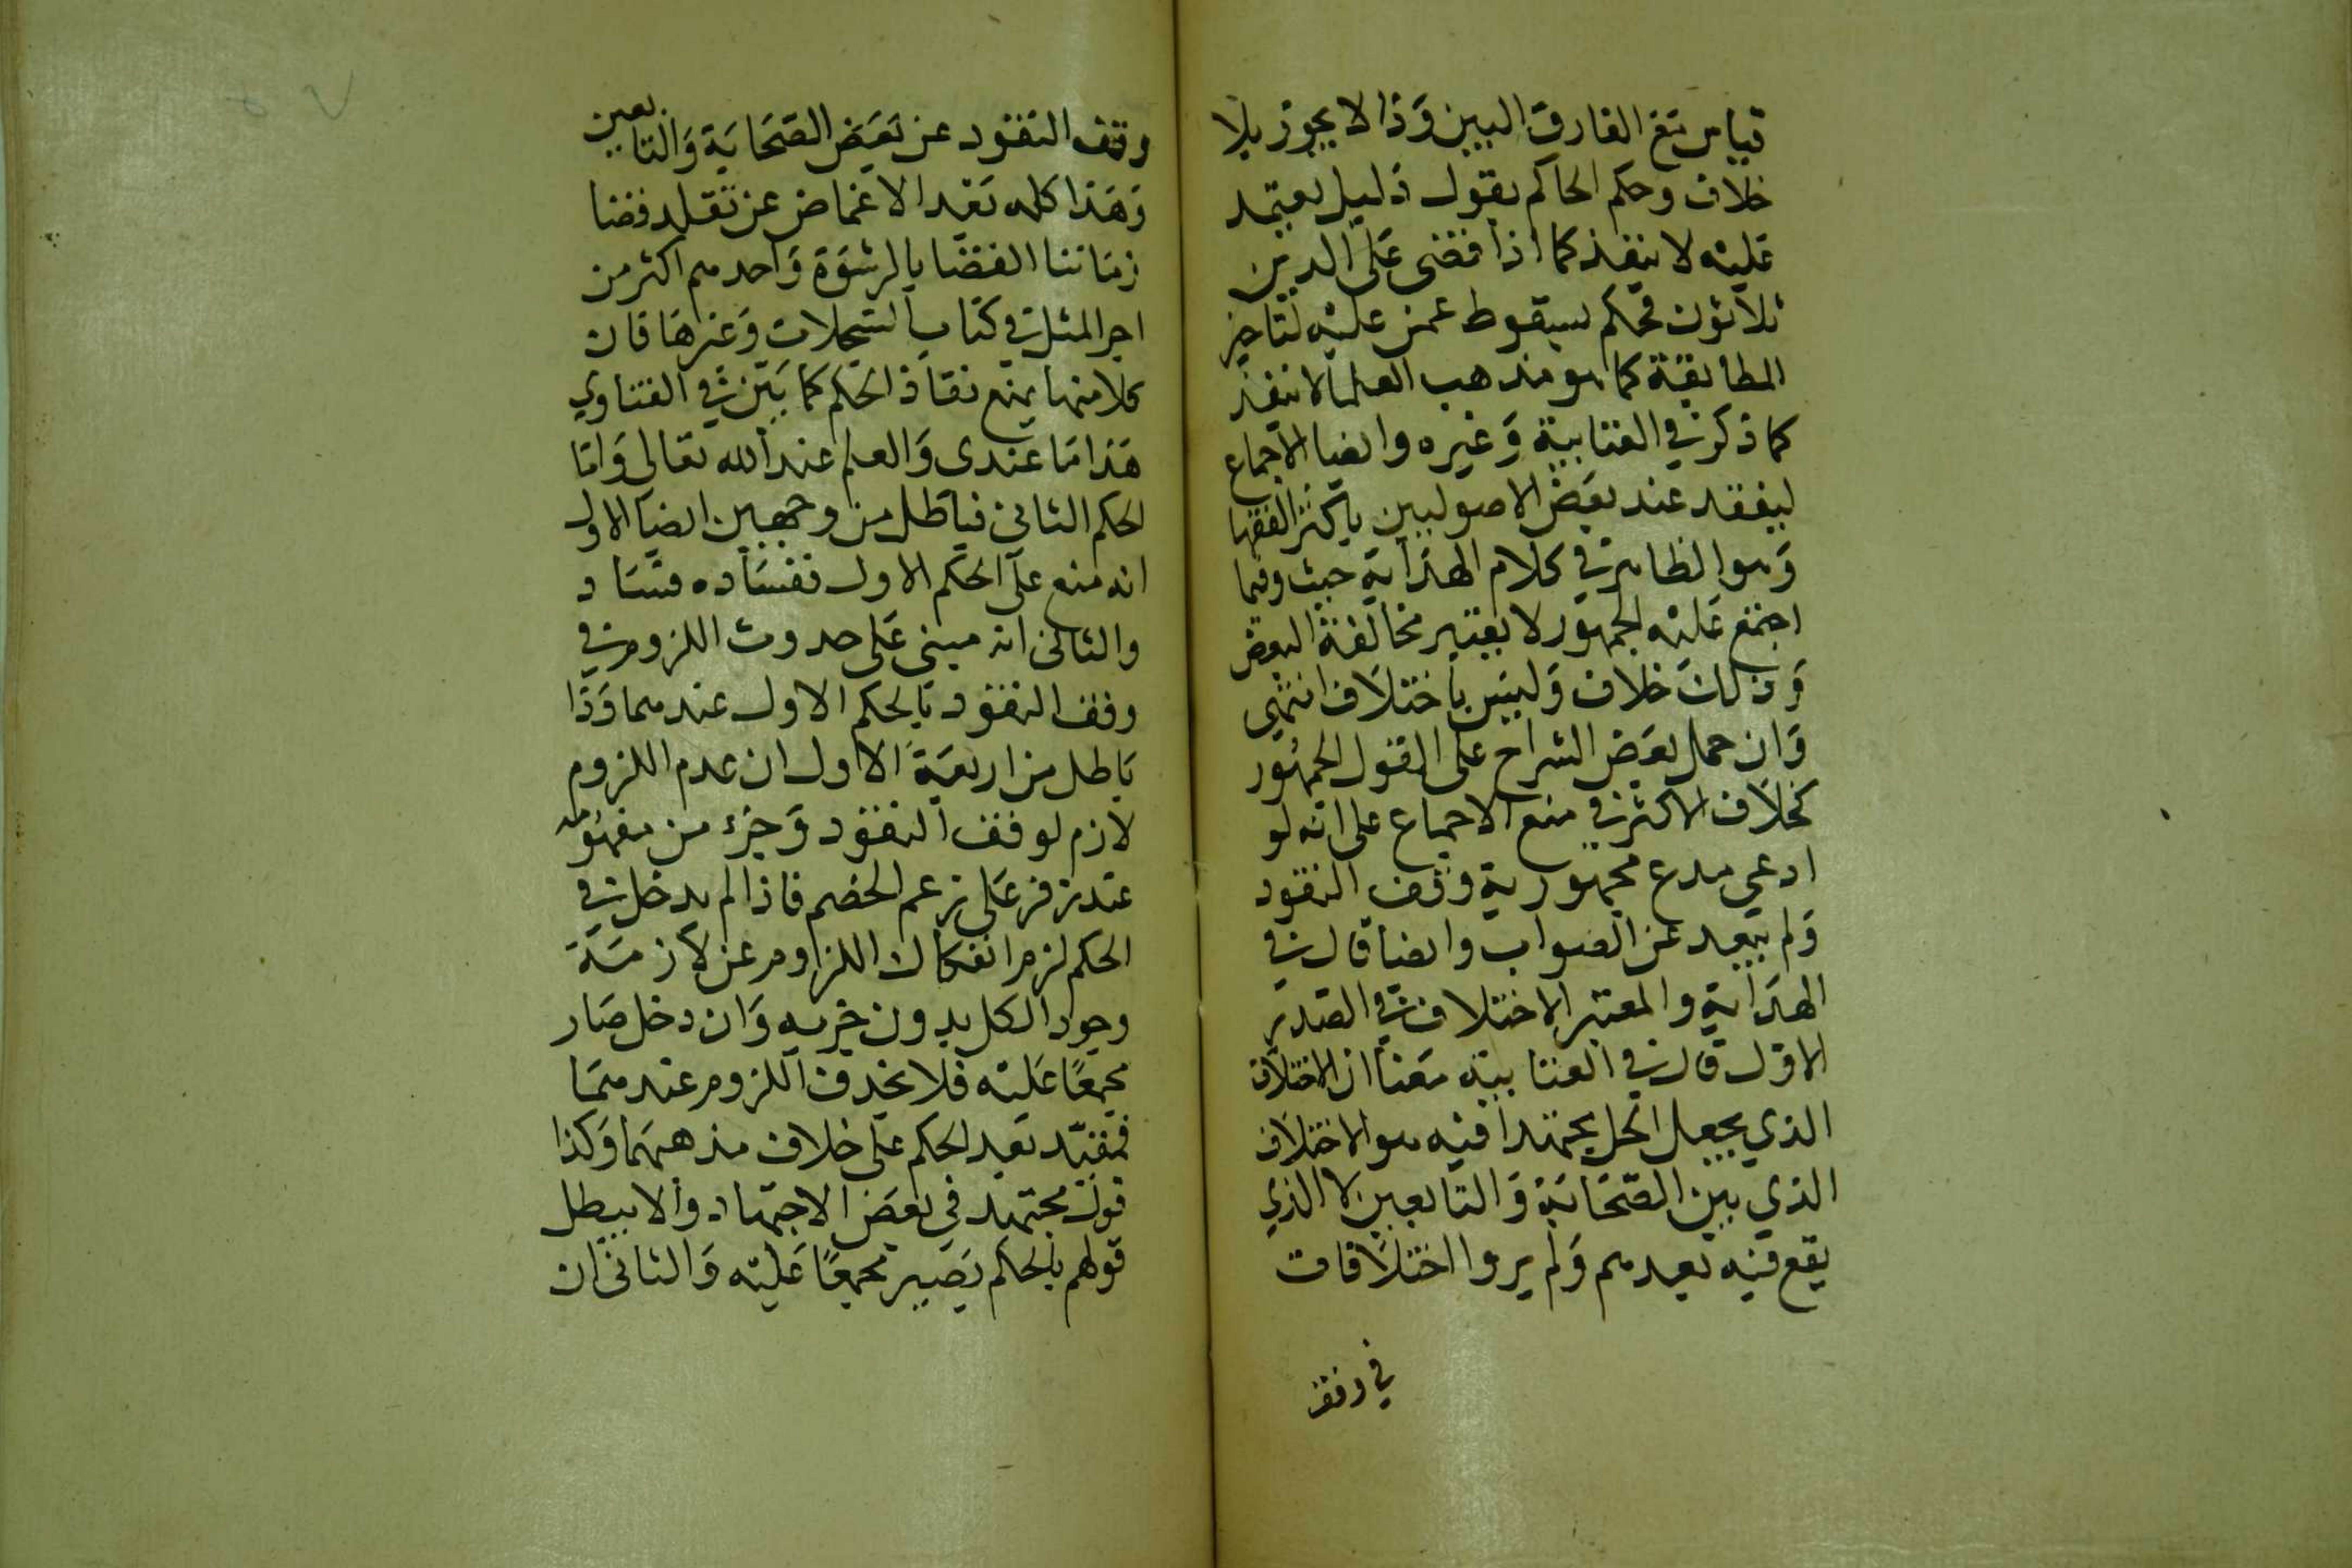 قياس مع الفارق البين وذا لا يجوز بلا
خلاف وحكم الحاكم بقول دليل يعتمد
عليه لا ينفذ كما اذا قضى على الدين
ثلاثون فحكم بسقوط عمن عليه لتاخير
المطالبة كما هو مذهب العلما لا ينفذ
كما ذكر في العنابية وغيره وايضا الاجماع
ليفقد عند بعض الاصوليين باكثر الفقها
وهو الظاهر في كلام الهداية حيث وفيما
اجتمع عليه الجمهور لا يعتبر مخالفة البعض
وذلك خلاف وليس باختلاف انتهى
وان حمل بعض الشراح على القول الجمهور
كخلاف الاكثر في منع الاجماع على انه لو
ادعى مدع مجمهورية وقف النقود
ولم يبعد عن الصواب وايضا قال في
الهداية والمعتبر الاختلاف في الصدر
الاول قال في العنابية معنا ان الاختلاف
الذي يجعل المحل مجتهدا فيه هو الاختلاف
الذي بين الصحابة والتابعين لا الذي
يقع فيه بعدهم ولم يروا اختلافات
في وقف
وقف النقود عن بعض الصحابة والتابعين
وهذا كله بعد الاغماض عن تقلد قضا
زماننا القضا بالرشوة واحدهم اكثر من
اجر المثل في كتاب السجلات وغيرها فان
كلا منها يمنع نفاذ الحكم كما بين في الفتاوي
هذا ما عندى والعلم عند الله تعالى واما
الحكم الثاني فباطل من وجهين ايضا الاول
انه منع على الحكم الاول نفساده فساد
والثاني انه مبني على حدوث اللزوم في
وقف النقود بالحكم الاول عندهما وذا
باطل من اربعة الاول ان عدم اللزوم
لازم لوقف النقود وجزء من مفهومه
عند زفر على زعم الخصم فاذا لم يدخل في
الحكم لزم انفكاك اللزوم عن لازمة
وجود الكل بدون جزيه وان دخل صار
مجمعا عليه فلا يحدث اللزوم عندهما
فيفيد بعد الحكم على خلاف مذهبهما وكذا
قول مجتهد في بعض الاجتهاد والا يبطل
قولهم بالحكم يصير مجمعا عليه والثاني ان